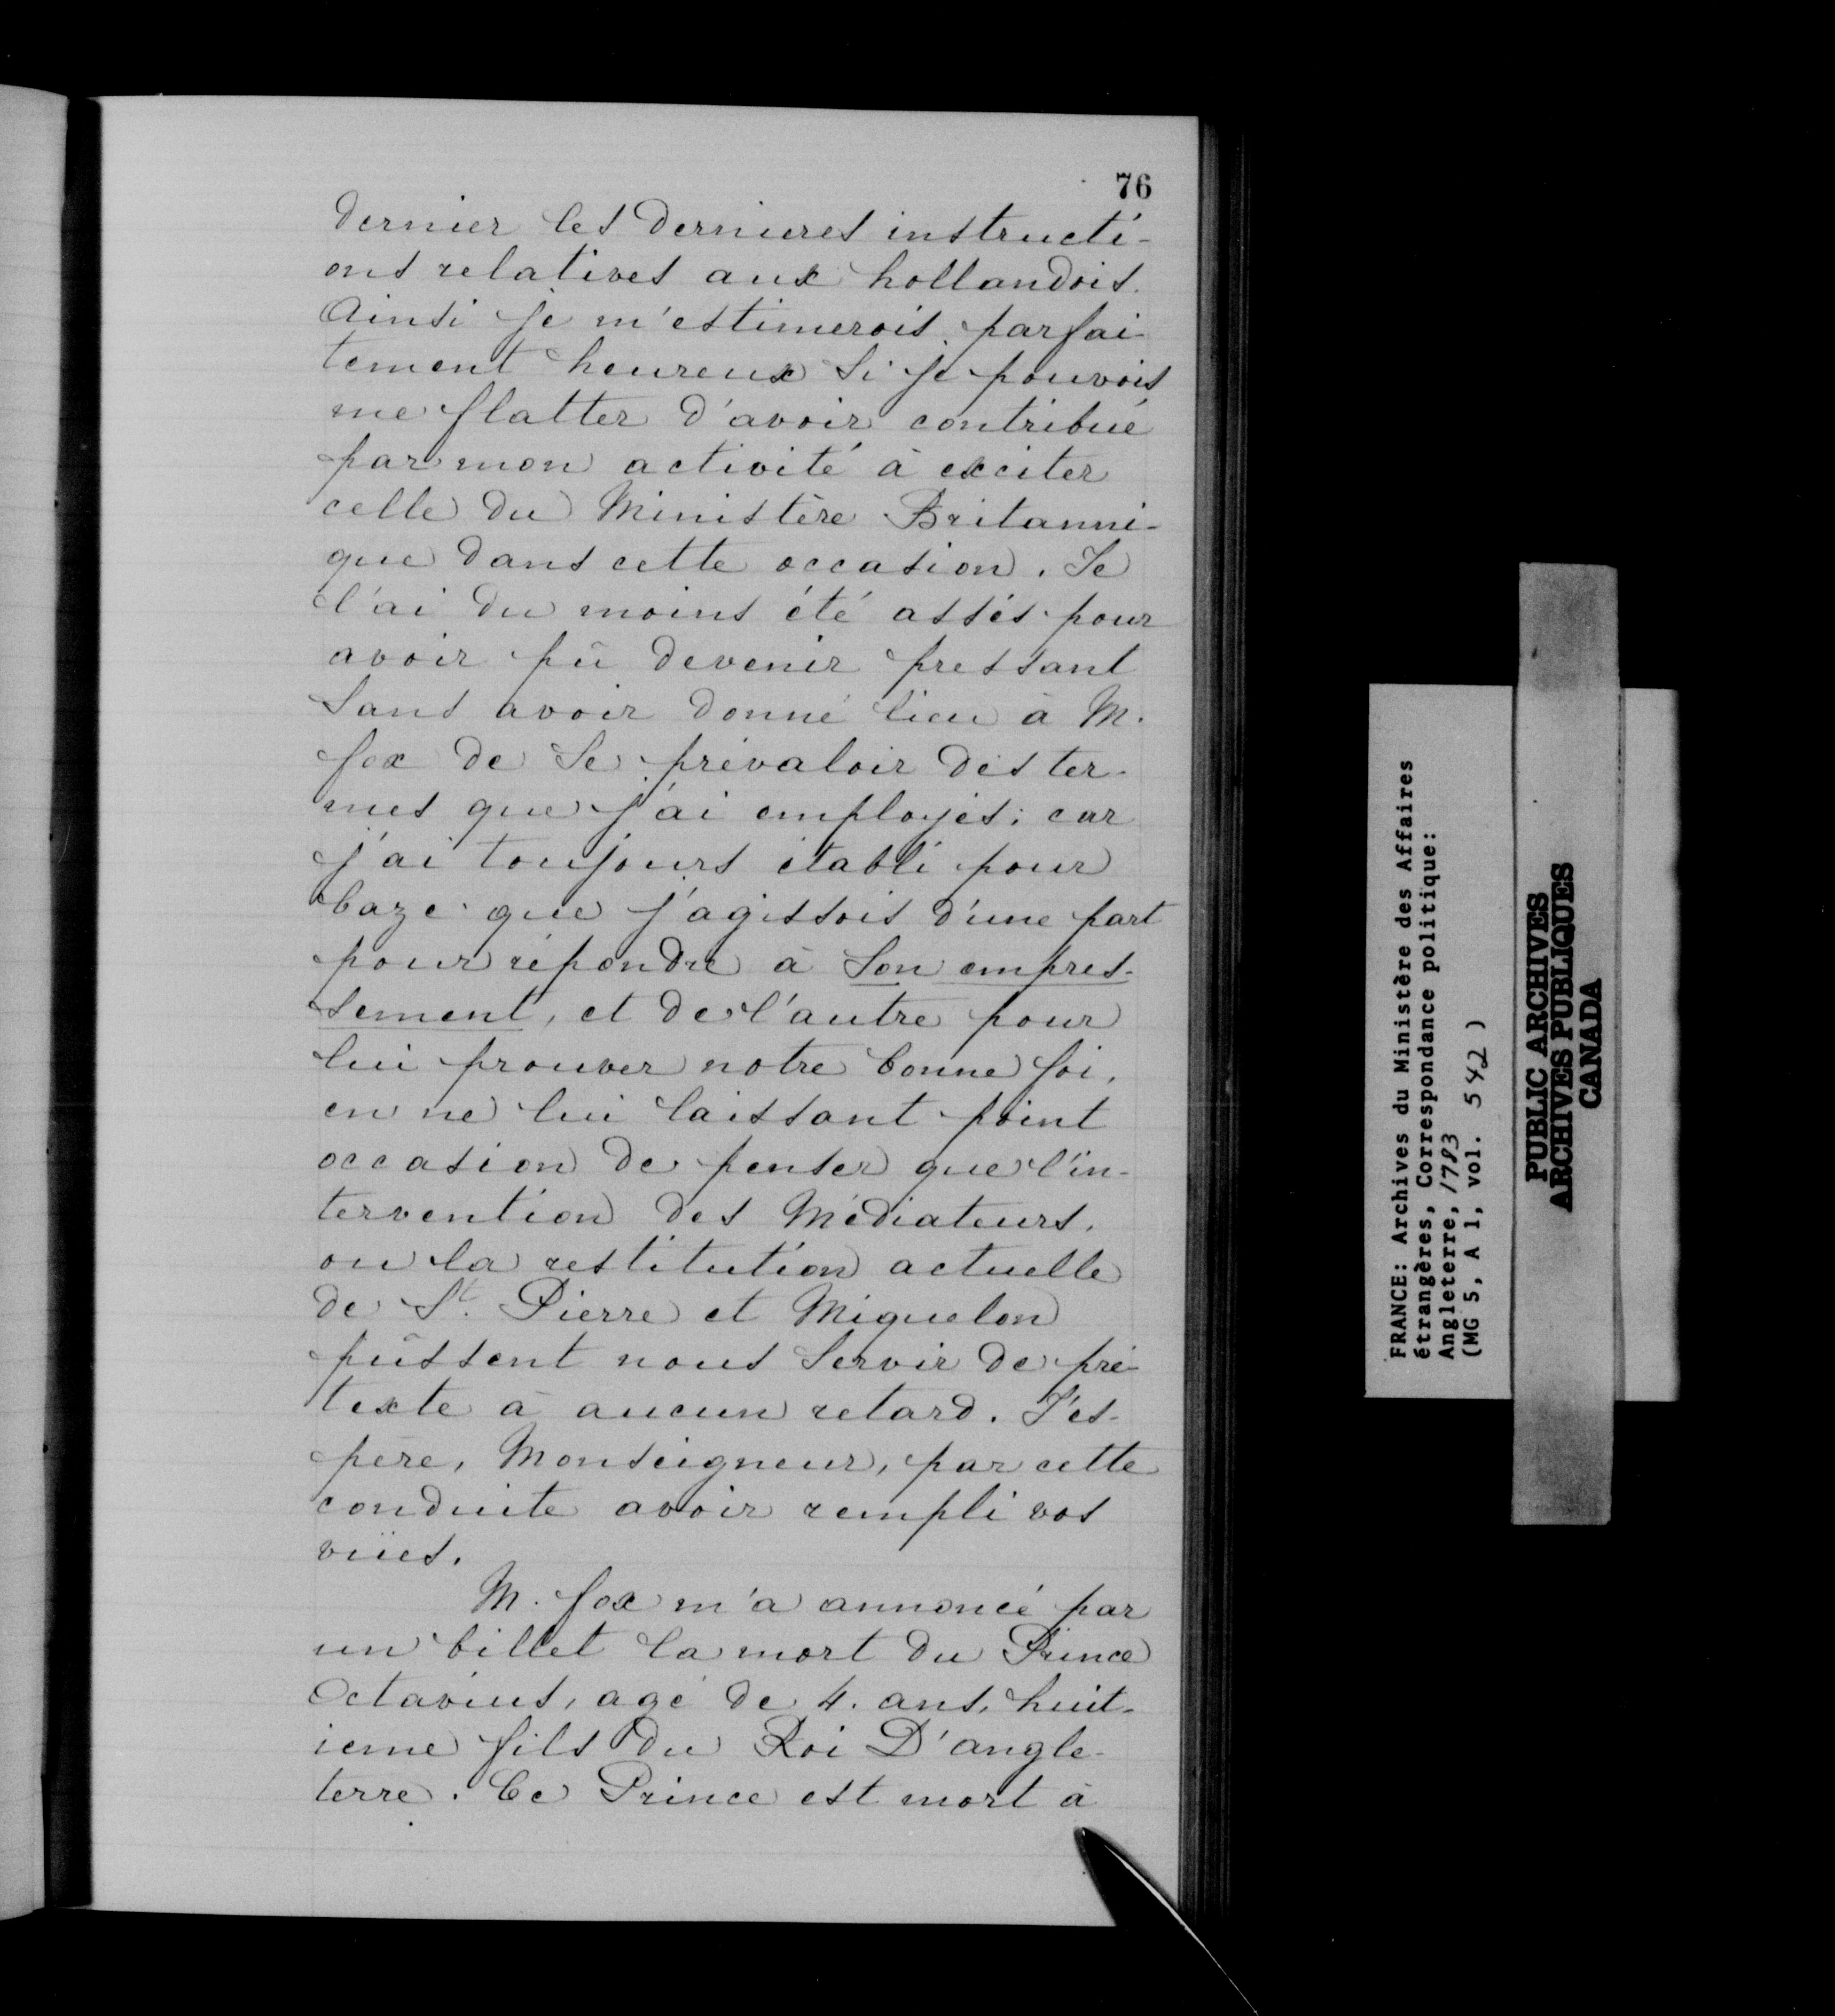 76
dernier les dernieres instructi-
ons relatives aux hollandois.
Ainsi je m'estimerois parfai-
tement heureux si je pouvois
me flatter d'avoir contribué
par mon activité à exciter
celle du Ministère Britanni-
que dans cette occasion. Je
l'ai du moins été assés pour
avoir pû devenir pressant
sans avoir donné lieu à M.
fox de se prévaloir des ter-
mes que j'ai employés; car
j'ai toujours établi pour
baze que j'agissois d'une part
pour répondre à son empres-
sement, et de l'autre pour
lui prouver notre bonne foi,
en ne lui laissant point
occasion de penser que l'in-
tervention des Médiateurs,
ou la restitution actuelle
de St. Pierre et Miquelon
pûssent nous servir de pré-
texte à aucun retard. J'es-
père, Monseigneur, par cette
conduite avoir rempli vos
vües.
M. fox m'a annoncé par
un billet la mort du Prince
Octavius, agé de 4. ans, huit-
ieme fils du Roi D'angle-
terre. Ce Prince est mort à
FRANCE: Archives du Ministère des Affaires
étrangères, Correspondance politique:
Angleterre, 1783
(MG 5, A 1, vol. 542)
PUBLIC ARCHIVES
ARCHIVES PUBLIQUES
CANADA